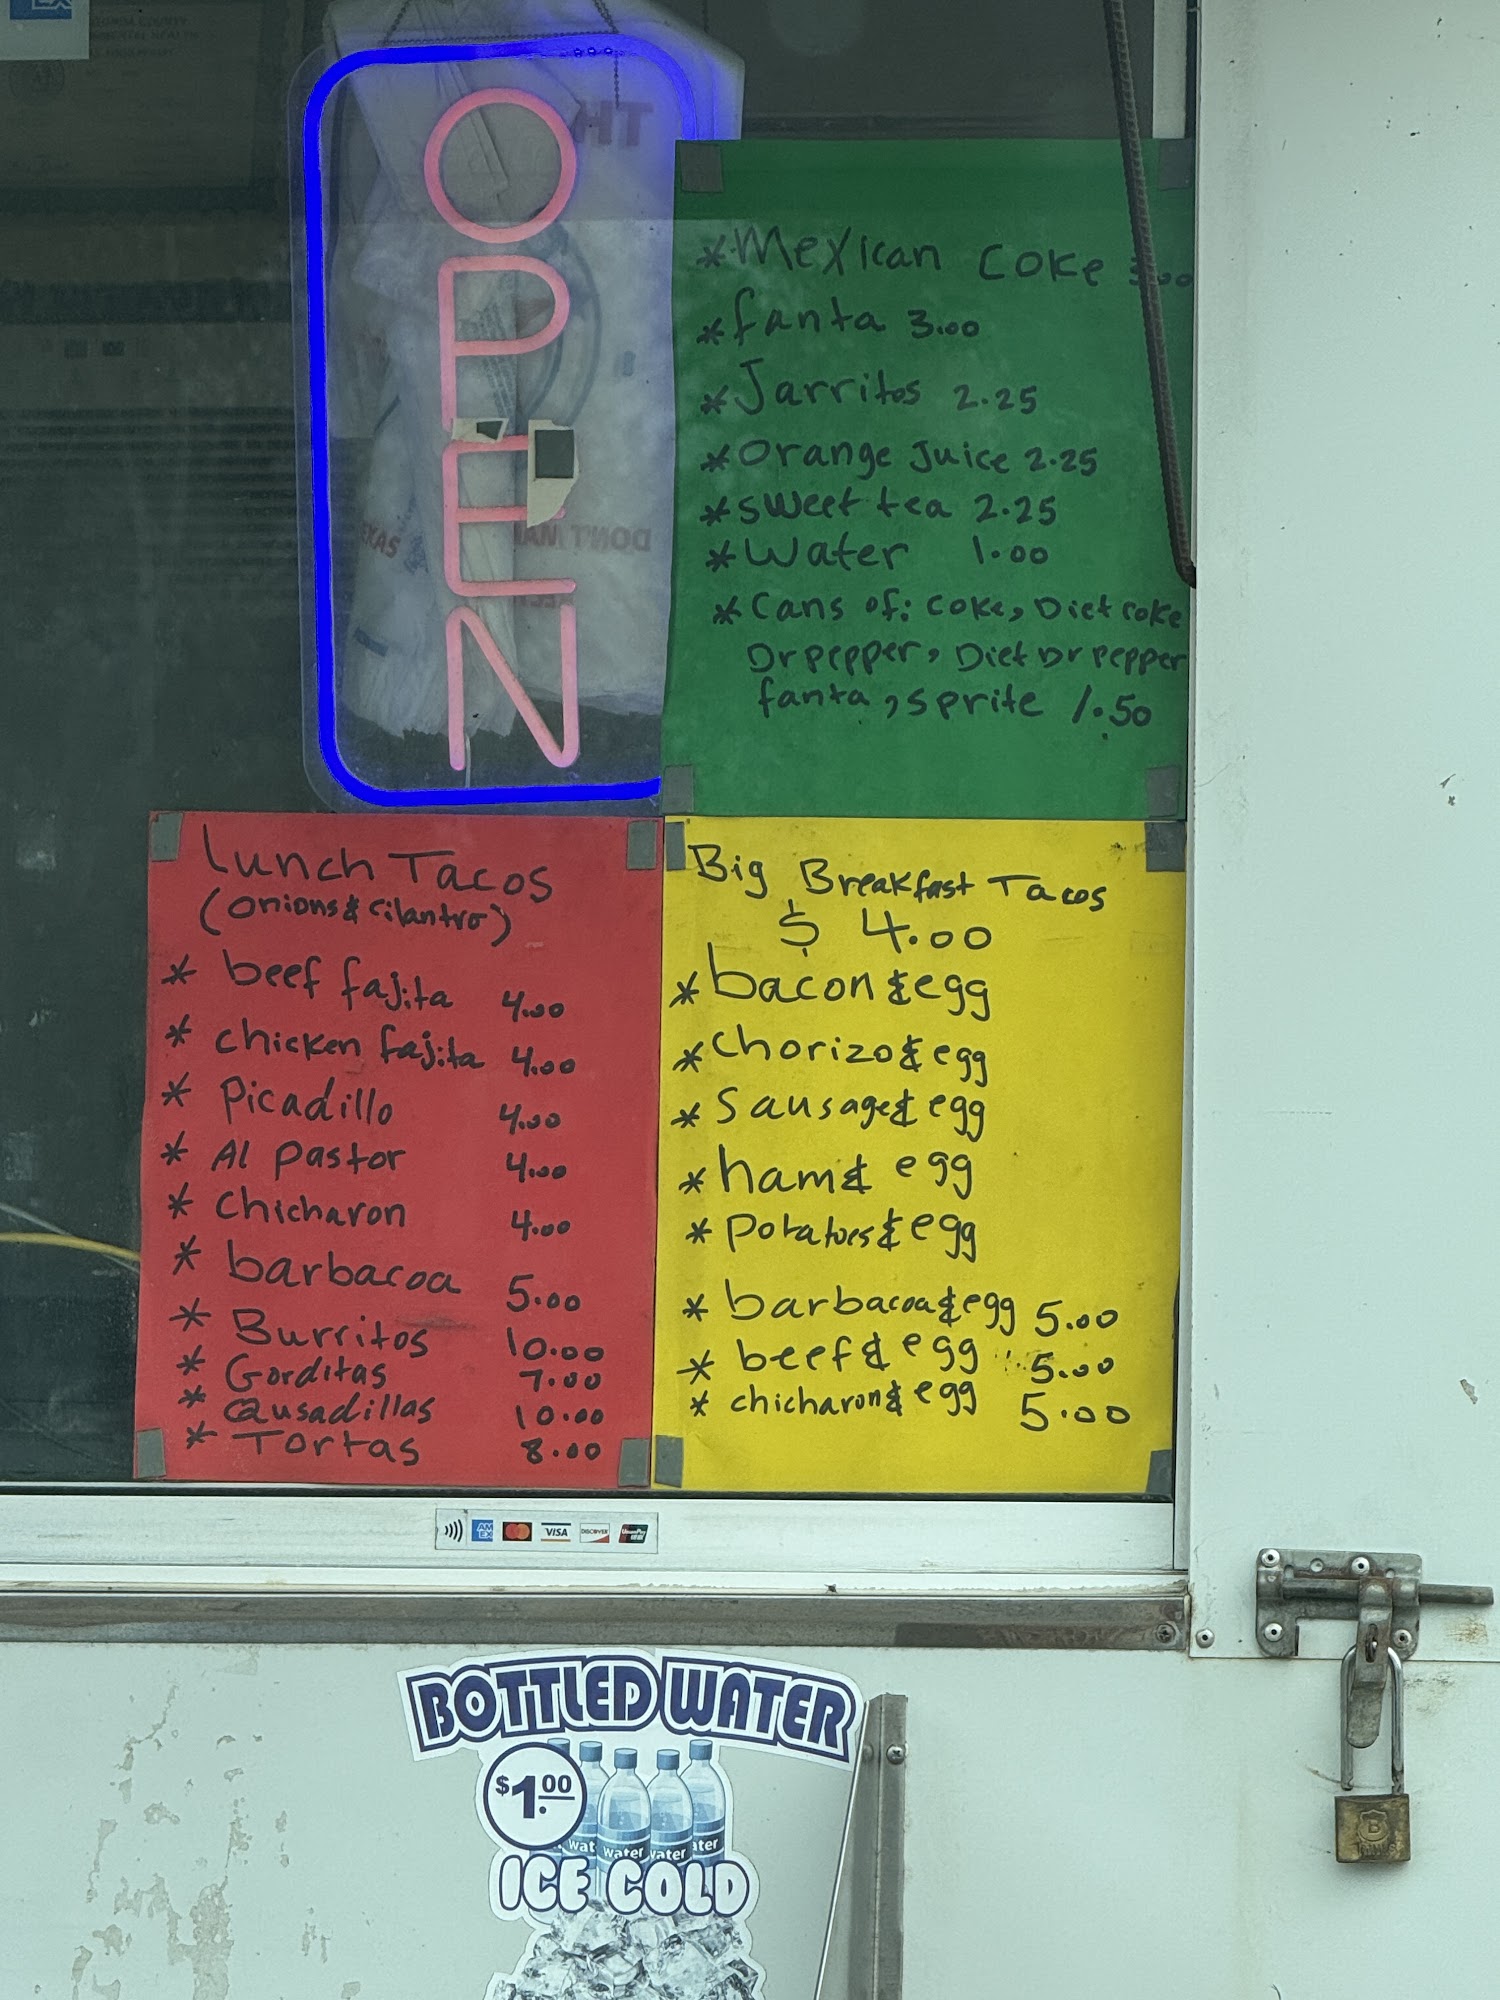 OPEN
*Mexican Coke 3.00
*fanta 3.00
*Jarritos 2.25
*Orange Juice 2.25
*Sweet tea 2.25
*Water 1.00
*Cans of: Coke, Diet coke
Dr pepper, Diet Dr pepper
fanta, sprite 1.50
Lunch Tacos
(Onions & cilantro)
* beef fajita 4.00
* chicken fajita 4.00
* Picadillo 4.00
* Al pastor 4.00
* chicharon 4.00
* barbacoa 5.00
* Burritos 10.00
* Gorditas 7.00
* Qusadillas 10.00
* Tortas 8.00
Big Breakfast Tacos
$ 4.00
* bacon & egg
* Chorizo & egg
* Sausage & egg
* ham & egg
* Potatoes & egg
* barbacoa & egg 5.00
* beef & egg 5.00
* chicharon & egg 5.00
AM EX VISA DISCOVER UnionPay
BOTTLED WATER
$1.00
wat water water ater
ICE COLD